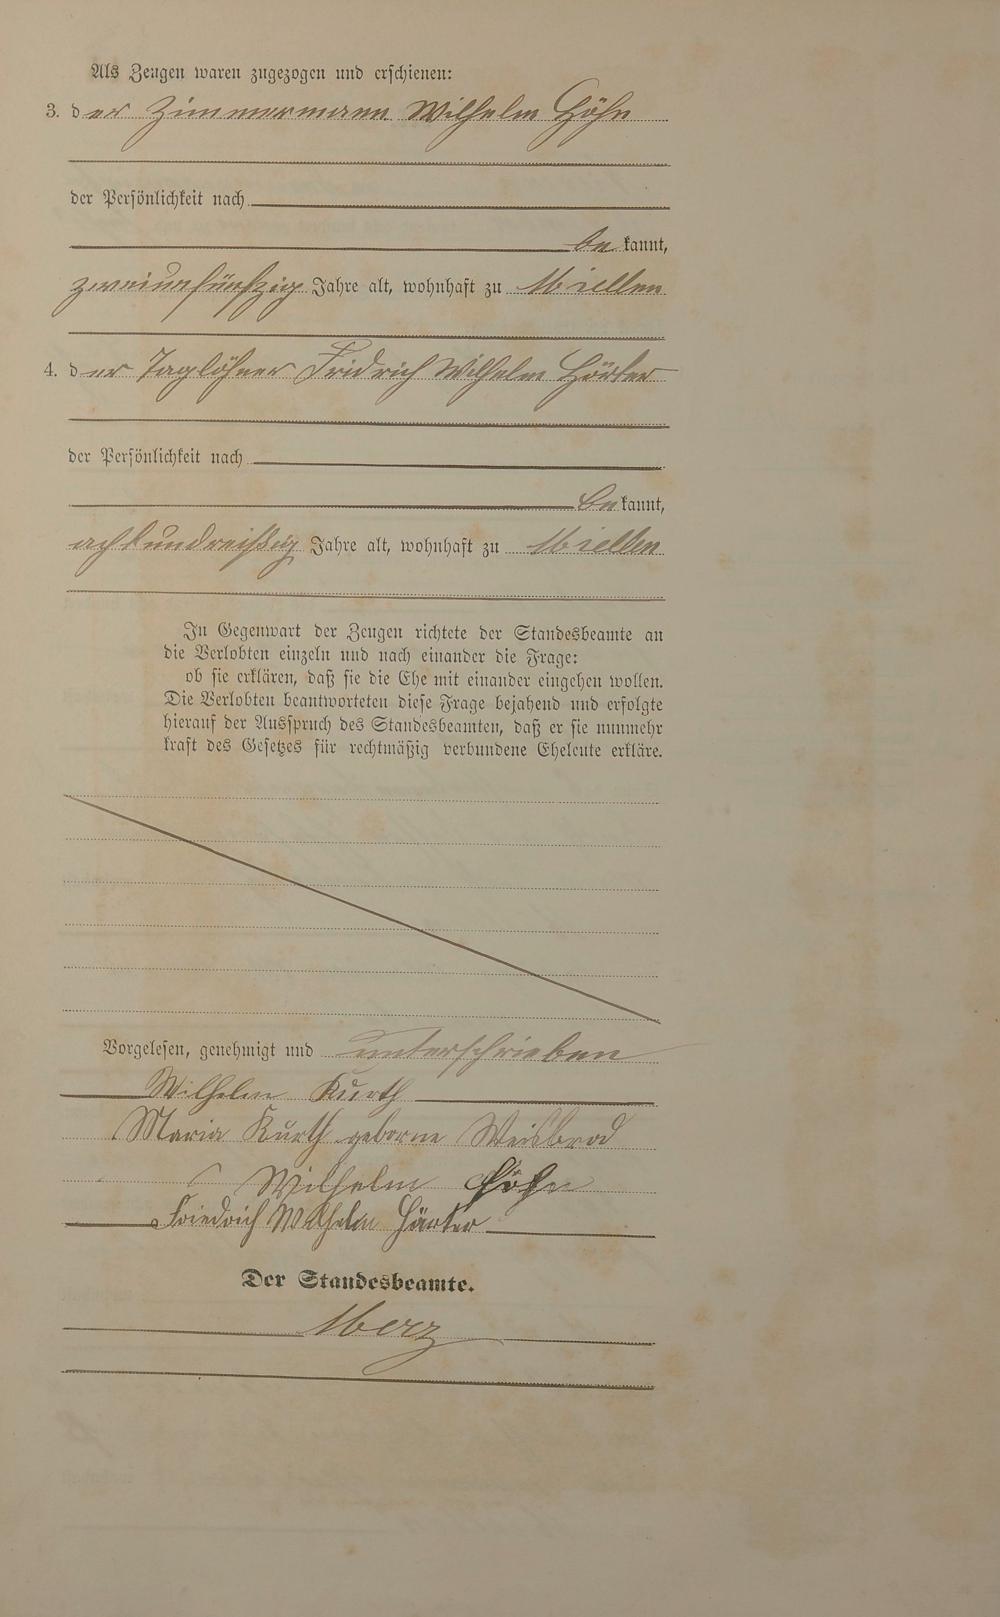 Als Zeugen waren zugezogen und erschienen:
3. der Zimmermann Wilhelm Höhn
der Persönlichkeit nach
bekannt,
zweiunfünfzig Jahre alt, wohnhaft zu Miellen
4. der Taglöhner Fridrich Wilhelm Härter
der Persönlichkeit nach
bekannt,
achtundreißig Jahre alt, wohnhaft zu Miellen
In Gegenwart der Zeugen richtete der Standesbeamte an
die Verlobten einzeln und nach einander die Frage:
ob sie erklären, daß sie die Ehe mit einander eingehen wollen.
Die Verlobten beantworteten diese Frage bejahend und erfolgte
hierauf der Ausspruch des Standesbeamten, daß er sie nunmehr
kraft des Gesetzes für rechtmäßig verbundene Eheleute erkläre.
Vorgelesen, genehmigt und unterschrieben
Wilhelm Kurth
Maria Kurth geborne Weisbrod
Wilhelm Höhn
Friedrich Wilhelm Härter
Der Standesbeamte.
Merz